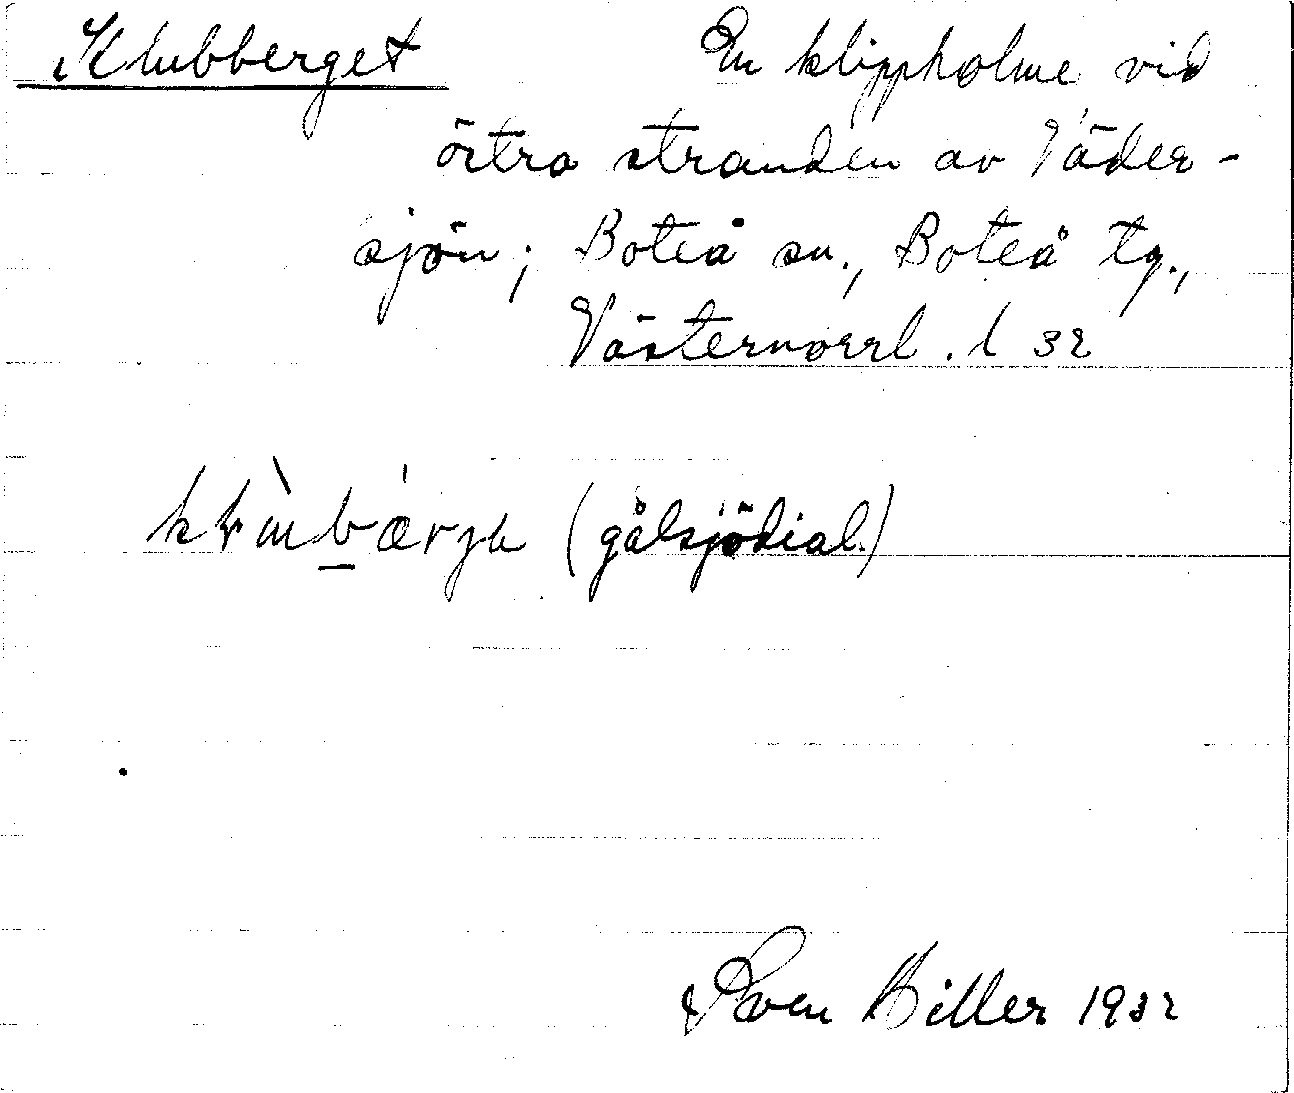 Klubberget En klippholme vid
östra stranden av Väder-
sjön; Boteå sn., Boteå tg.,
Västernorrl. l 32
(gålsjödial.)
Sven Hiller 1932